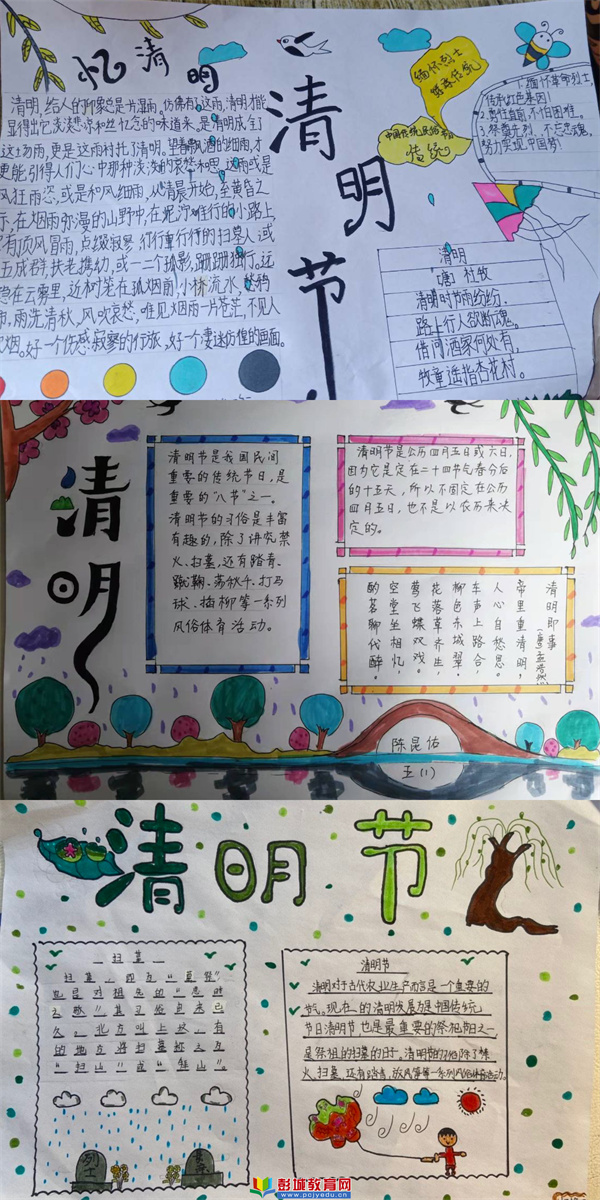 忆清明
清明,给人的印象总是片湿雨,仿佛有了这雨,清明才能
显得出它淡淡悲凉和丝忆念的味道来。是清明成全了
这场雨,更是这雨衬托了清明。望着飘洒的细雨,才
更能引得人们心中那种淡淡的哀愁和思
风狂雨恣,或是和风细雨,从清晨开始,至黄昏之
示,在烟雨弥漫的山野中,在泥泞难行的小路上,
有顶风冒雨,点缀寂寥
五成群,扶老携幼,或一二个孤影,踽踽独行。远
隐在云雾里,近树笼在孤烟前,小桥流水
雨洗清秋,风吹哀愁,唯见烟雨一片苍茫,不见人
炊烟。好一个伤感寂寥的行旅,好一个凄迷彷徨的画面。
清明节
缅怀烈士
继承传统
中国传统民俗节日
传统
1.缅怀革命烈士,
传承红色基因!
2.勇往直前,不怕困难。
3.祭奠先烈,不忘忠魂,
努力实现中国梦!
清明
[唐]杜牧
清明时节雨纷纷,
路上行人欲断魂。
借问酒家何处有,
牧童遥指杏花村。
清明
清明节是我国民间
重要的传统节日,是
重要的“八节”之一。
清明节的习俗是丰富
有趣的,除了讲究禁
火、扫墓,还有踏青、
蹴鞠、荡秋千、打马
球、插柳等一系列
风俗体育活动。
清明节是公历四月五日或六日,
因为它是定在二十四节气春分后
的十五天,所以不固定在公历
四月五日,也不是以农历来决
定的。
清明即事
(唐)孟浩然
帝里重清明,
人心自愁思。
车声上路合,
柳色东城翠。
花落草齐生,
莺飞蝶双戏。
空堂坐相忆,
酌茗聊代醉。
陈昆佑
五(1)
清明节
扫墓
扫墓,即为“墓祭”
也是对祖先的“思时
之敬”其习俗由来已
久,北方叫上坟,有
的地方将扫墓称之为
“扫山”或“拜山”
烈士
清明节
清明对于古代农业生产而言是一个重要的
节气。现在,的清明发展为是中国传统
节日清明节,也是最重要的祭祀节日之一
是祭祖的扫墓的日子。清明节的习俗除了禁
火、扫墓,还有踏青、放风筝等一系列风俗体育活动。
彭城教育网
www.pcjyedu.cn